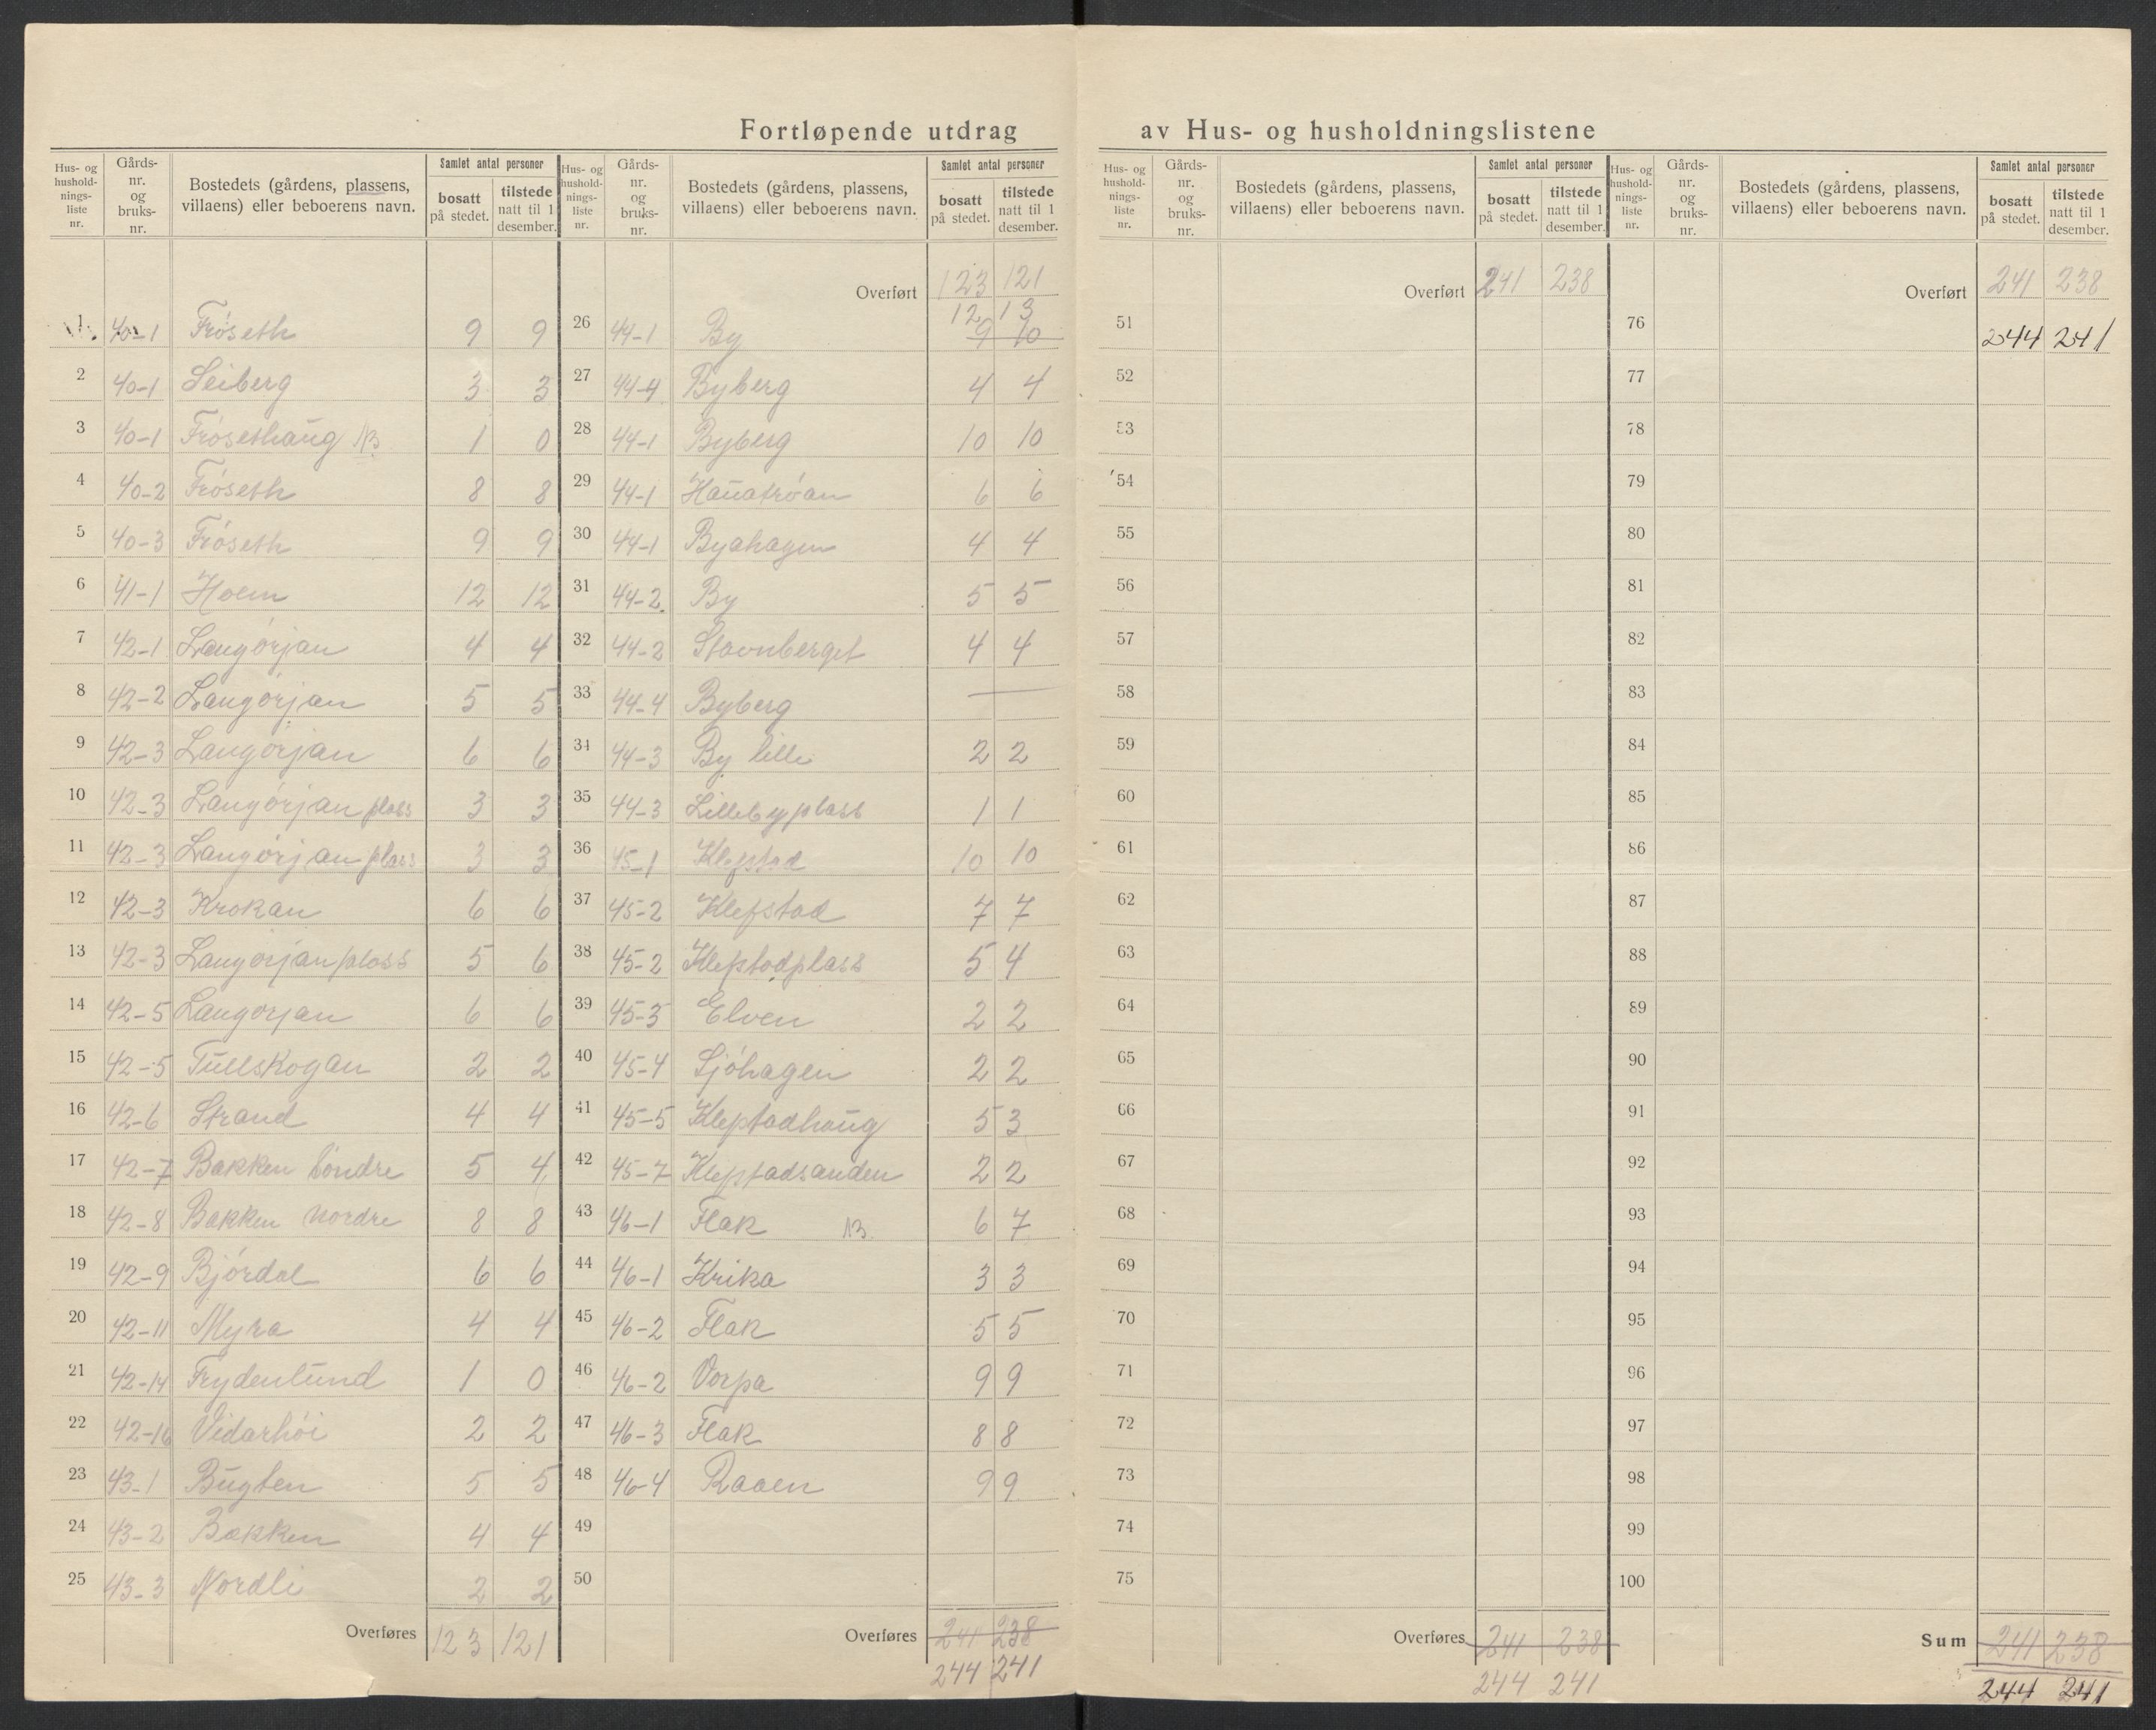 Fortløpende utdrag av Hus- og husholdningslistene
Hus- og husholdnings-liste nr. | Gårds-nr. og bruks-nr. | Bostedets (gårdens, plassens, villaens) eller beboerens navn. | Samlet antal personer | bosatt på stedet. | tilstede natt til 1 desember.
1 40-1 Fröseth 9 9
2 40-1 Leiberg 3 3
3 40-1 Frösethaug NB. 1 0
4 40-2 Fröseth 8 8
5 40-3 Fröseth 9 9
6 41-1 Hoem 12 12
7 42-1 Langörjan 4 4
8 42-2 Langörjan 5 5
9 42-3 Langörjan 6 6
10 42-3 Langörjan plass 3 3
11 42-3 Langörjan plass 3 3
12 42-3 Krokan 6 6
13 42-3 Langörjan plass 5 6
14 42-5 Langörjan 6 6
15 42-5 Tullskogan 2 2
16 42-6 Strand 4 4
17 42-7 Bakken söndre 5 4
18 42-8 Bakken nordre 8 8
19 42-9 Björdal 6 6
20 42-11 Myra 4 4
21 42-14 Frydenlund 1 0
22 42-16 Vidarhöi 2 2
23 43-1 Bugten 5 5
24 43-2 Bakken 4 4
25 43-3 Nordli 2 2
Overføres 123 121
Hus- og husholdnings-liste nr. | Gårds-nr. og bruks-nr. | Bostedets (gårdens, plassens, villaens) eller beboerens navn. | Samlet antal personer | bosatt på stedet. | tilstede natt til 1 desember.
Overført 123 121
12 13
26 44-1 By 9 10
27 44-4 Byberg 4 4
28 44-1 Byberg 10 10
29 44-1 Hauatröan 6 6
30 44-1 Byahagen 4 4
31 44-2 By 5 5
32 44-2 Stavnberget 4 4
33 44-4 Byberg —
34 44-3 By lille 2 2
35 44-3 Lillebyplass 1 1
36 45-1 Klefstad 10 10
37 45-2 Klefstad 7 7
38 45-2 Klefstadplass 5 4
39 45-3 Elven 2 2
40 45-4 Sjöhagen 2 2
41 45-5 Klefstadhaug 5 3
42 45-7 Klefstadsanden 2 2
43 46-1 Flak NB. 6 7
44 46-1 Krika 3 3
45 46-2 Flak 5 5
46 46-2 Vorpa 9 9
47 46-3 Flak 8 8
48 46-4 Raaen 9 9
49
50
Overføres 241 238
244 241
Hus- og husholdnings-liste nr. | Gårds-nr. og bruks-nr. | Bostedets (gårdens, plassens, villaens) eller beboerens navn. | Samlet antal personer | bosatt på stedet. | tilstede natt til 1 desember.
Overført 241 238
51
52
53
54
55
56
57
58
59
60
61
62
63
64
65
66
67
68
69
70
71
72
73
74
75
Overføres 241 238
244 241
Hus- og husholdnings-liste nr. | Gårds-nr. og bruks-nr. | Bostedets (gårdens, plassens, villaens) eller beboerens navn. | Samlet antal personer | bosatt på stedet. | tilstede natt til 1 desember.
Overført 241 238
76 244 241
77
78
79
80
81
82
83
84
85
86
87
88
89
90
91
92
93
94
95
96
97
98
99
100
Sum 241 238
244 241